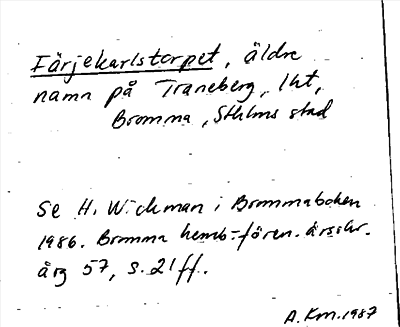 Färjekarlstorpet, äldre
namn på Traneberg, lht,
Bromma, Sthlms stad
Se H. Wickman i Brommaboken
1986. Bromma hemb.-fören. årsskr.
årg 57, s. 21 ff.
A. Km. 1987